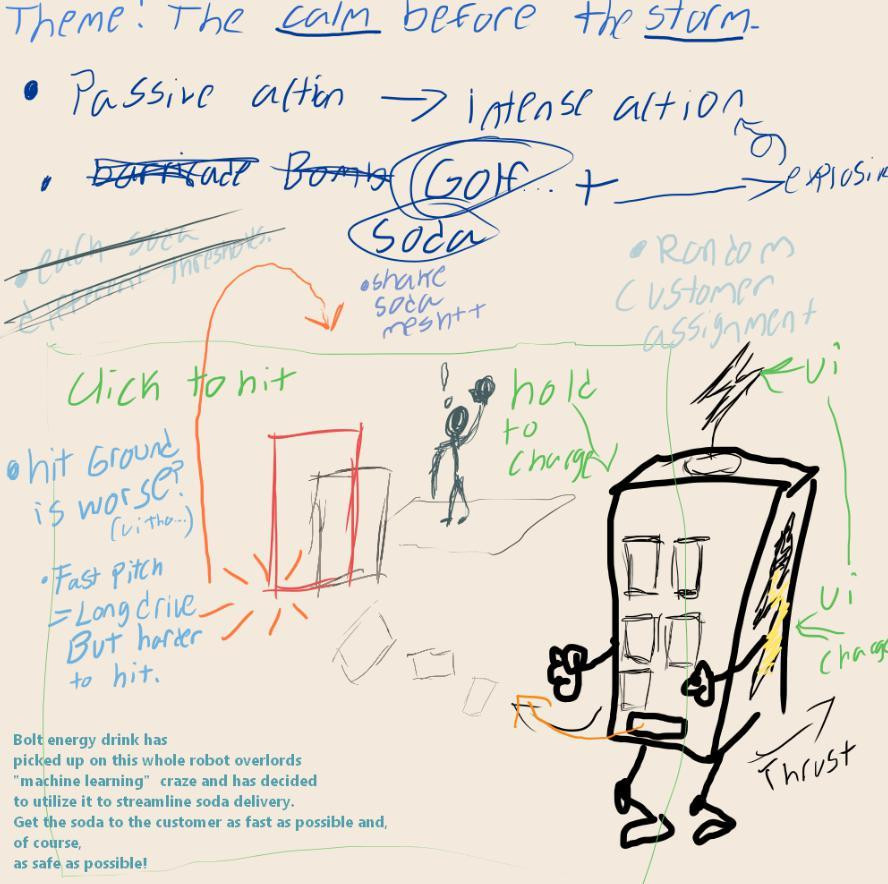 Theme: The calm before the storm.
• Passive action → intense action
• barricade Bomb Golf... + → explosive
Soda
• each soda
different thresholds.
• shake
soda
mesh++
• Random
Customer
assignment
Click to hit
hold
to
charge
ui
• hit Ground
is worse?
(ui tho...)
• Fast Pitch
= Long drive
But harder
to hit.
ui
charge
Thrust
Bolt energy drink has
picked up on this whole robot overlords
"machine learning" craze and has decided
to utilize it to streamline soda delivery.
Get the soda to the customer as fast as possible and,
of course,
as safe as possible!